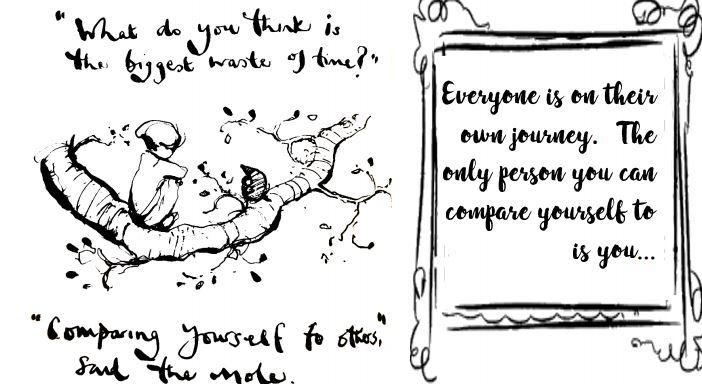 "What do you think is
the biggest waste of time?"
"Comparing yourself to others,"
said the mole.
Everyone is on their
own journey. The
only person you can
compare yourself to
is you...